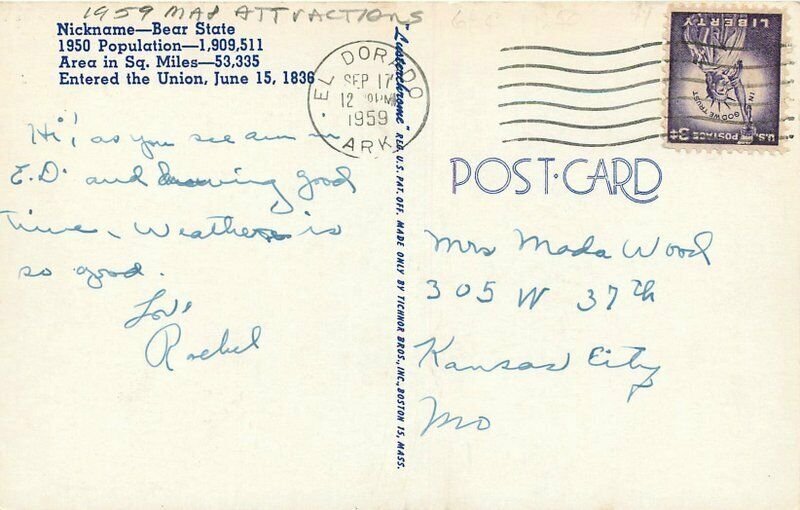 1959 MAP ATTRACTIONS
Nickname—Bear State
1950 Population—1,909,511
Area in Sq. Miles—53,335
Entered the Union, June 15, 1836
Hi! as you see am in
E.D. and having good
time. Weather is
so good.
Love
Rachel
"Lusterchrome" REG. U.S. PAT. OFF. MADE ONLY BY TICHNOR BROS., INC., BOSTON 15, MASS.
EL DORADO
SEP 17
12 PM
1959
ARK.
LIBERTY
IN GOD WE TRUST
U.S. POSTAGE 3¢
POST-CARD
Mrs Mada Wood
305 W 37th
Kansas City
Mo